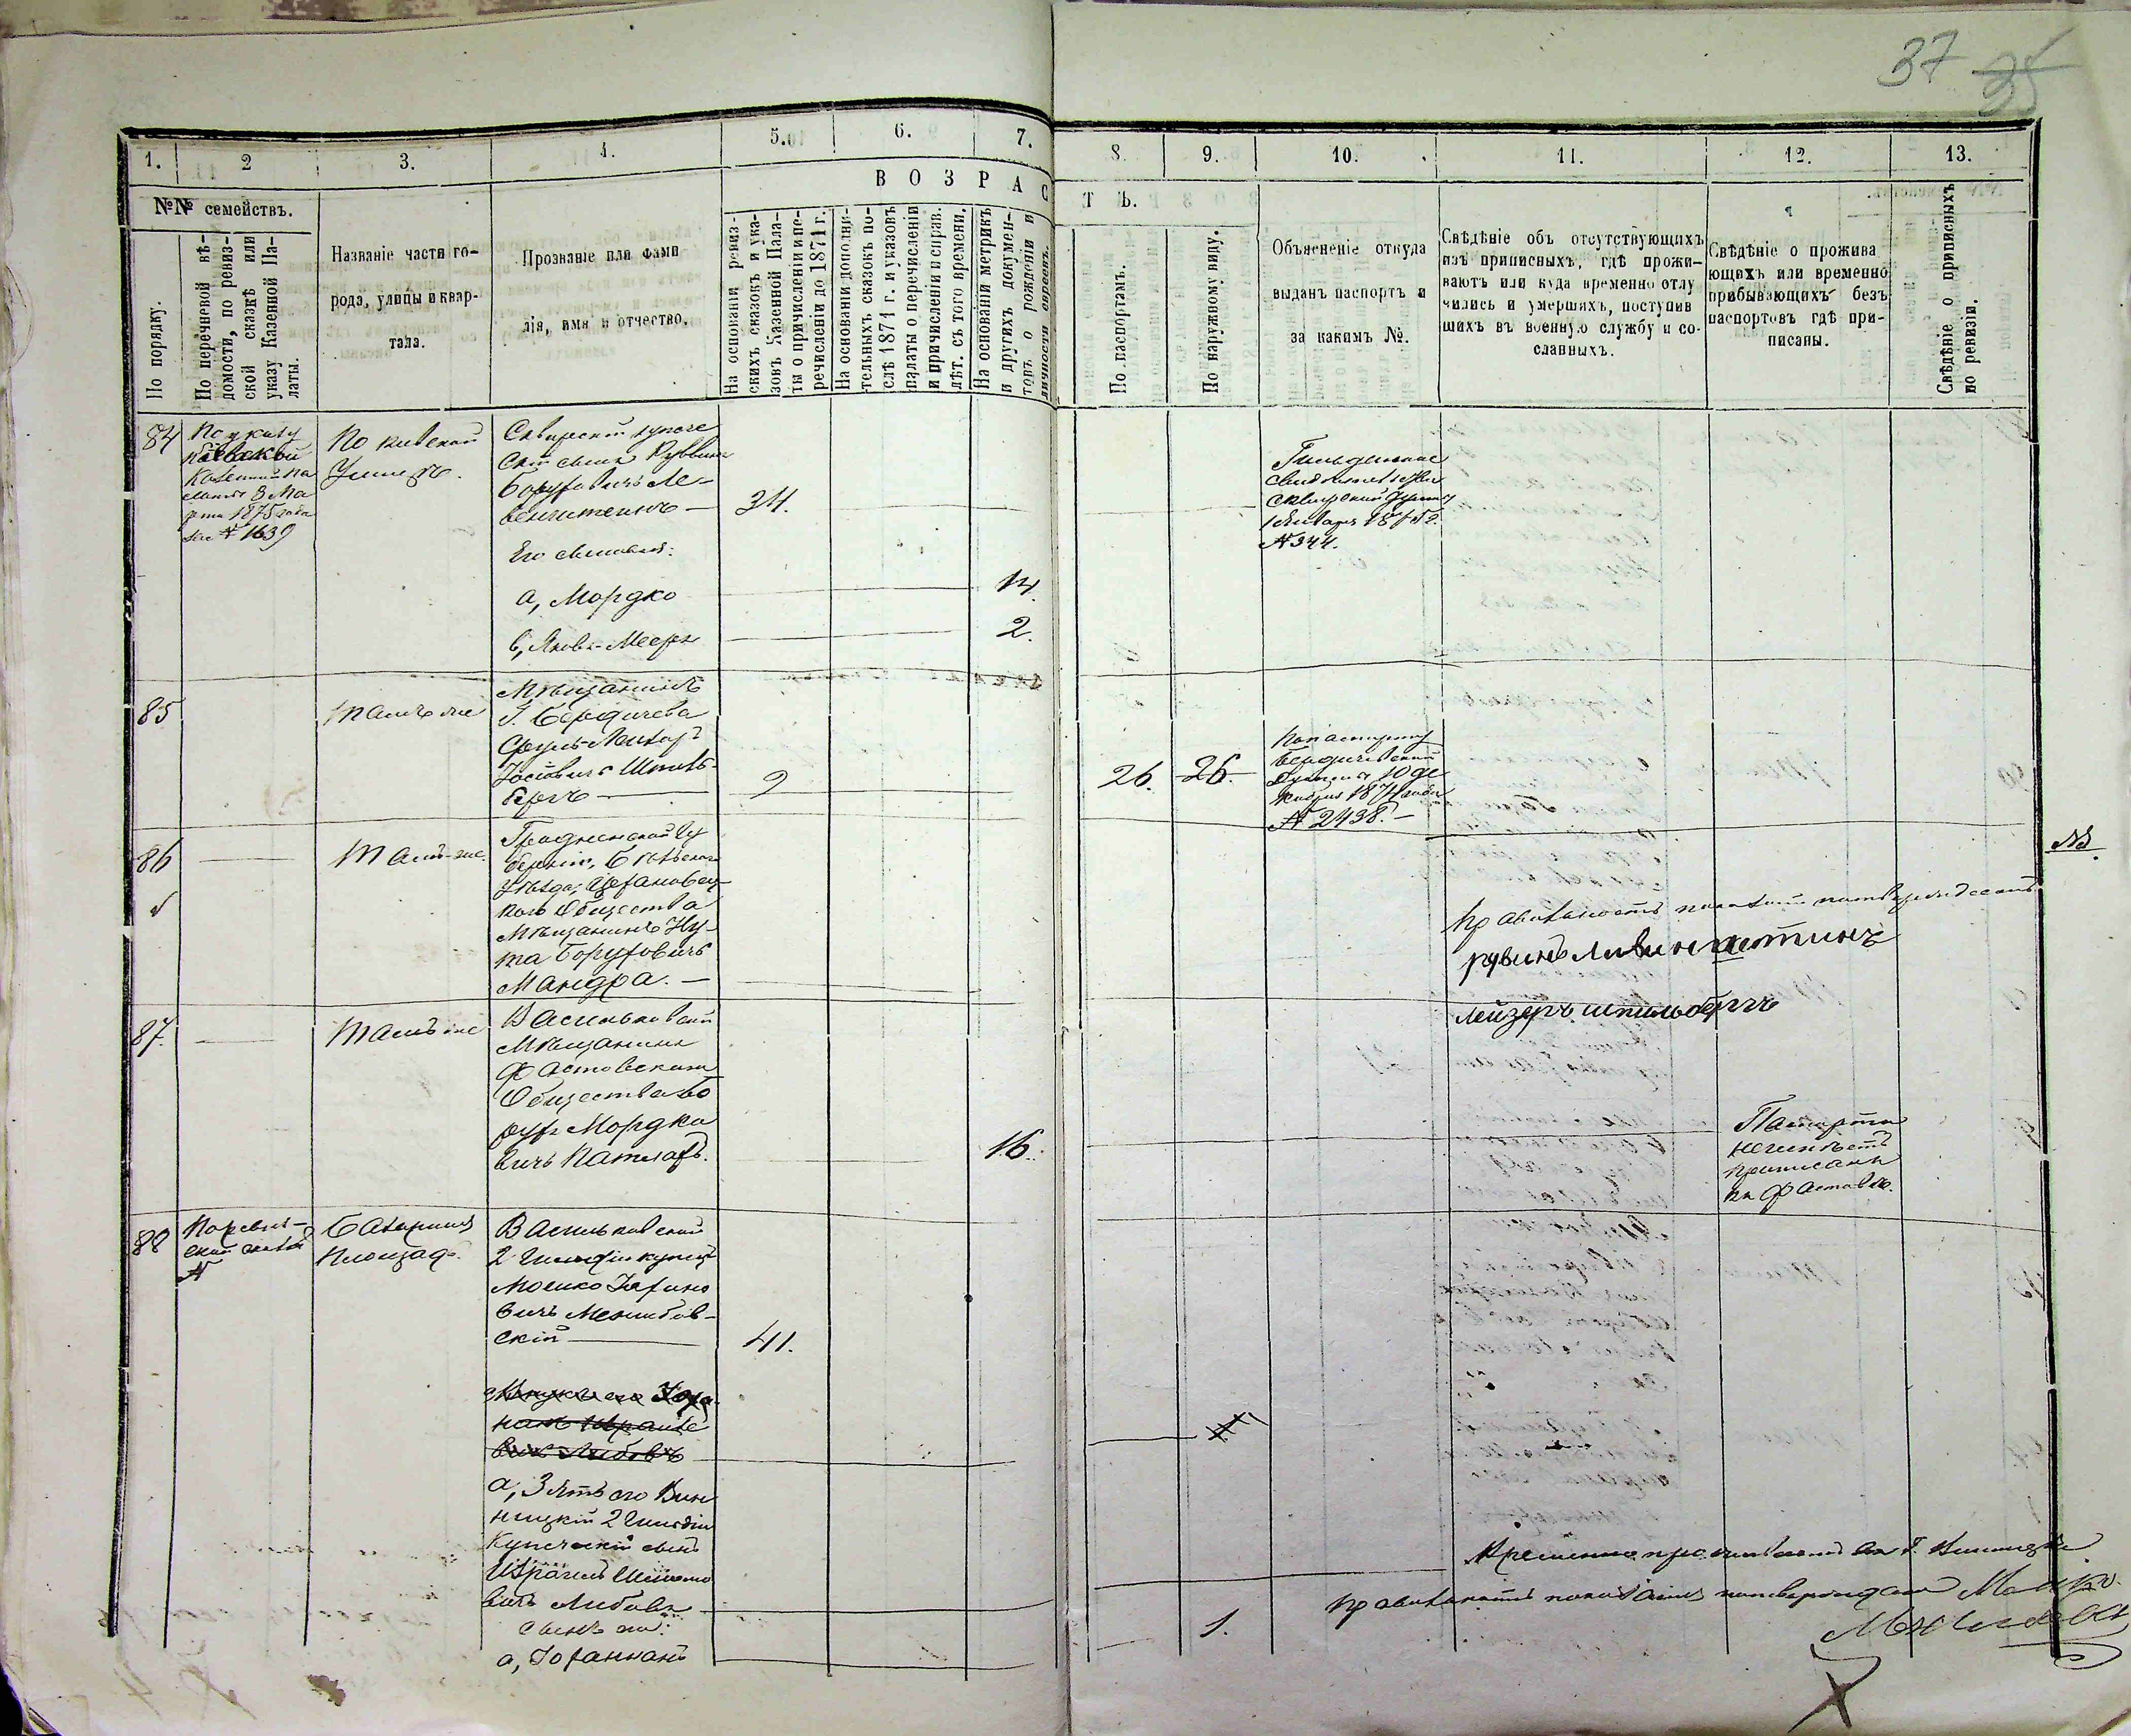 37 35
1. 2 3. 4. 5. 6. 7. 8. 9. 10. 11. 12. 13.
ВОЗРАСТЪ.
№№ семействъ.
По порядку.
По перечневой вѣ-
домости, по ревиз-
ской сказкѣ или
указу Казенной Па-
латы.
Названіе части го-
рода, улицы и квар-
тала.
Прозваніе или фами
лія, имя и отчество.
На основаніи ревиз-
скихъ сказокъ и ука-
зовъ Казенной Пала-
ты о причисленіи и пе-
речисленіи до 1871 г.
На основаніи дополни-
тельныхъ сказокъ по-
слѣ 1871 г. и указовъ
палаты о перечисленіи
и причисленіи и справ.
лѣт. съ того времени.
На основаніи метрикъ
и другихъ докумен-
товъ о рожденіи и
личности евреевъ.
По паспортамъ.
По наружному виду.
Объясненіе откуда
выданъ паспортъ и
за какимъ №.
Свѣдѣніе объ отсутствующихъ
изъ приписныхъ, гдѣ прожи-
ваютъ или куда временно отлу
чились и умершихъ, поступив
шихъ въ военную службу и со-
сланныхъ.
Свѣдѣніе о прожива
ющихъ или временно
прибывающихъ безъ
паспортовъ гдѣ при-
писаны.
Свѣдѣніе о приписныхъ
по ревизіи.
84
По указу
Кіевской
Казенной Па
латы 3 Ма
рта 1875 года
за № 1639
По Кіевской
Улицѣ.
Сквирскій купече
скій сынъ Рувинъ
Боруховичъ Ле-
венштейнъ 34.
Его сыновья:
а, Мордко 14.
в, Яковъ-Мееръ 2.
Гильдейское
свидетельство
Сквирской Думы
1 Января 1875 г.
№ 344.
85
тамъ же
Мѣщанинъ
Г. Бердичева
Сруль-Лейзоръ
Іосіовичъ Шпиль-
бергъ 9
26. 26.
По паспорту
Бердичевской
Думы 10 де
кабря 1874 года
№ 2438.
86
тамъ-же.
Гродненской Гу
берніи, Бѣльскаго
Уѣзда, Цехановец-
каго Общества
Мѣщанинъ Ну-
та Боруховичъ
Мандра.
NB.
Правильность показаній потверждаемъ
рувинъ Ливинштинъ
Лейзеръ шпильбергъ
87.
тамъ же
Васильковскій
Мѣщанинъ
Фастовскаго
Общества Бо
рухъ Мордко
вичъ 16.
Паспорта
неимѣетъ
приписанъ
къ Фастовѣ.
88
По ревиз-
ской сказкѣ
№
Базарная
Площадь.
Васильковскій
2 Гильдіи купецъ
Мошко
вичъ Межибов-
скій 41.
а, Зять его Вин
ницкій 2 Гильдіи
Купеческій сынъ
Израиль
вичъ Либовъ
Сынъ его:
а, Іоханнанъ 1.
Временно проживаетъ въ Г. Винницѣ
Правильность показанія потверждаю Мошко